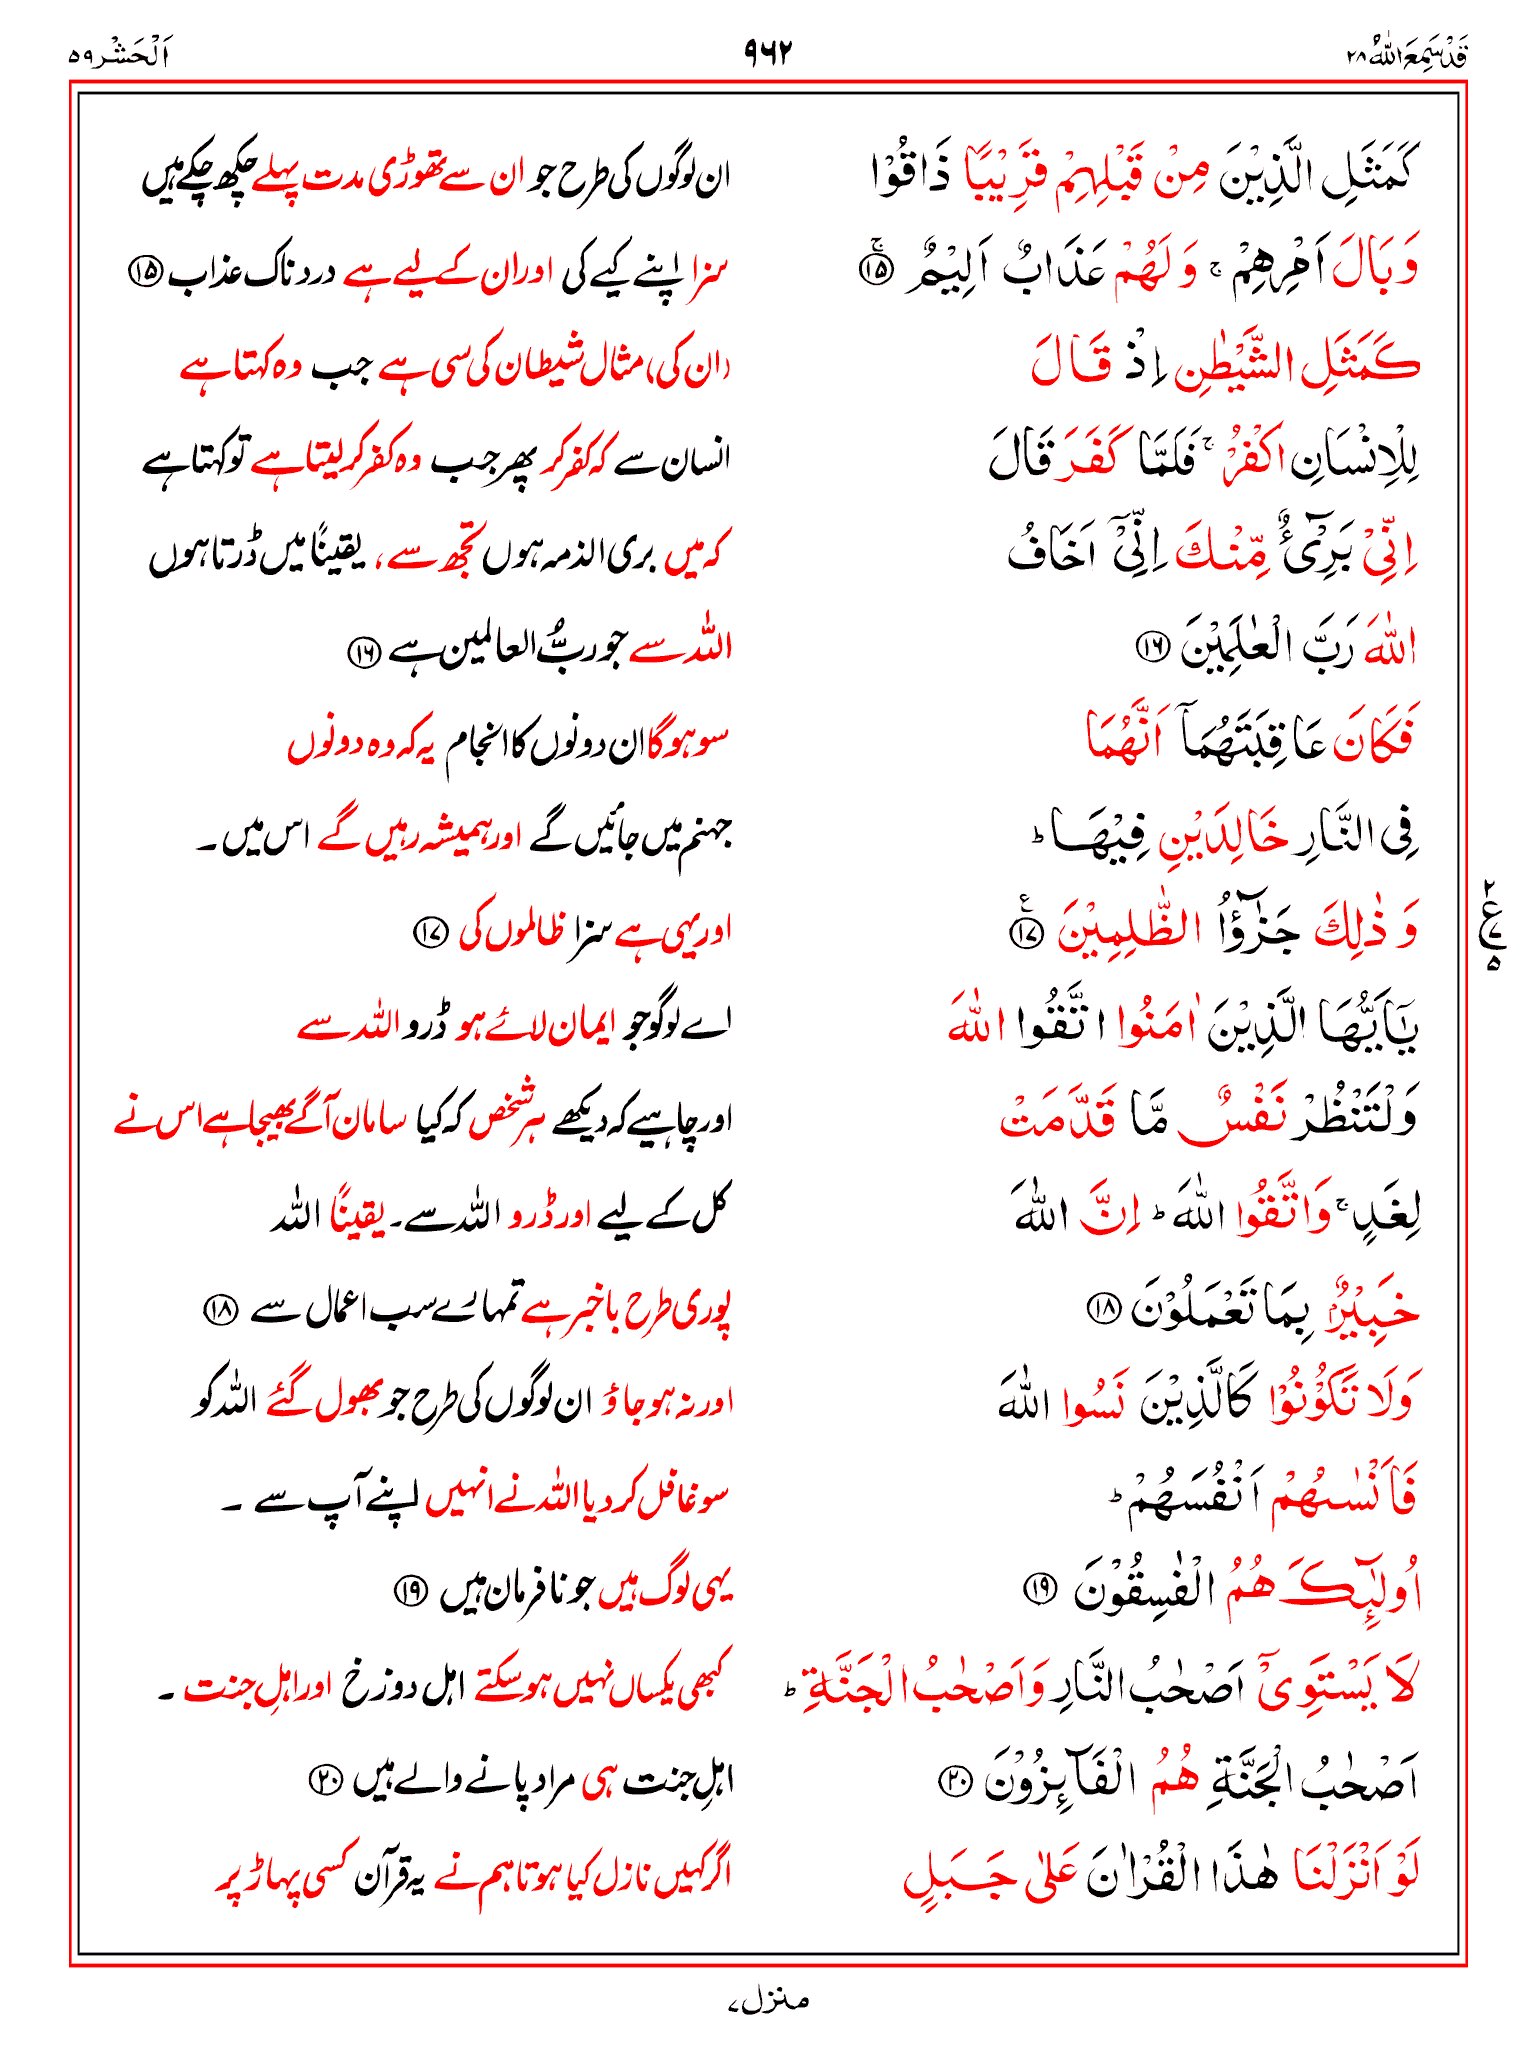 قَدْ سَمِعَ اللّٰهُ ۲۸
۹۶۲
اَلْحَشْر ۵۹
كَمَثَلِ الَّذِيْنَ مِنْ قَبْلِهِمْ قَرِيْبًا ذَاقُوْا
ان لوگوں کی طرح جو ان سے تھوڑی مدت پہلے چکھ چکے ہیں
وَبَالَ اَمْرِهِمْ ۚ وَلَهُمْ عَذَابٌ اَلِيْمٌ ۚ ⑮
سزا اپنے کیے کی اور ان کے لیے ہے دردناک عذاب ⑮
كَمَثَلِ الشَّيْطٰنِ اِذْ قَالَ
(ان کی) مثال شیطان کی سی ہے جب وہ کہتا ہے
لِلْاِنْسَانِ اكْفُرْ ۚ فَلَمَّا كَفَرَ قَالَ
انسان سے کہ کفر کر پھر جب وہ کفر کر لیتا ہے تو کہتا ہے
اِنِّيْ بَرِيْٓءٌ مِّنْكَ اِنِّيْٓ اَخَافُ
کہ میں بری الذمہ ہوں تجھ سے، یقیناً میں ڈرتا ہوں
اللّٰهَ رَبَّ الْعٰلَمِيْنَ ⑯
اللہ سے جو ربُّ العالمین ہے ⑯
فَكَانَ عَاقِبَتَهُمَآ اَنَّهُمَا
سو ہوگا ان دونوں کا انجام یہ کہ وہ دونوں
فِى النَّارِ خَالِدَيْنِ فِيْهَا ؕ
جہنم میں جائیں گے اور ہمیشہ رہیں گے اس میں۔
وَذٰلِكَ جَزٰٓؤُا الظّٰلِمِيْنَ ۧ ⑰
اور یہی ہے سزا ظالموں کی ⑰
۲
ع
۷
۵
يٰٓاَيُّهَا الَّذِيْنَ اٰمَنُوا اتَّقُوا اللّٰهَ
اے لوگو جو ایمان لائے ہو ڈرو اللہ سے
وَلْتَنْظُرْ نَفْسٌ مَّا قَدَّمَتْ
اور چاہیے کہ دیکھے ہر شخص کہ کیا سامان آگے بھیجا ہے اس نے
لِغَدٍ ۚ وَاتَّقُوا اللّٰهَ ؕ اِنَّ اللّٰهَ
کل کے لیے اور ڈرو اللہ سے۔ یقیناً اللہ
خَبِيْرٌۢ بِمَا تَعْمَلُوْنَ ⑱
پوری طرح باخبر ہے تمہارے سب اعمال سے ⑱
وَلَا تَكُوْنُوْا كَالَّذِيْنَ نَسُوا اللّٰهَ
اور نہ ہو جاؤ ان لوگوں کی طرح جو بھول گئے اللہ کو
فَاَنْسٰىهُمْ اَنْفُسَهُمْ ؕ
سو غافل کر دیا اللہ نے انہیں اپنے آپ سے ۔
اُولٰٓئِكَ هُمُ الْفٰسِقُوْنَ ⑲
یہی لوگ ہیں جو نافرمان ہیں ⑲
لَا يَسْتَوِيْٓ اَصْحٰبُ النَّارِ وَاَصْحٰبُ الْجَنَّةِ ؕ
کبھی یکساں نہیں ہو سکتے اہل دوزخ اور اہلِ جنت ۔
اَصْحٰبُ الْجَنَّةِ هُمُ الْفَآئِزُوْنَ ⑳
اہلِ جنت ہی مراد پانے والے ہیں ⑳
لَوْ اَنْزَلْنَا هٰذَا الْقُرْاٰنَ عَلٰى جَبَلٍ
اگر کہیں نازل کیا ہوتا ہم نے یہ قرآن کسی پہاڑ پر
منزل ۷